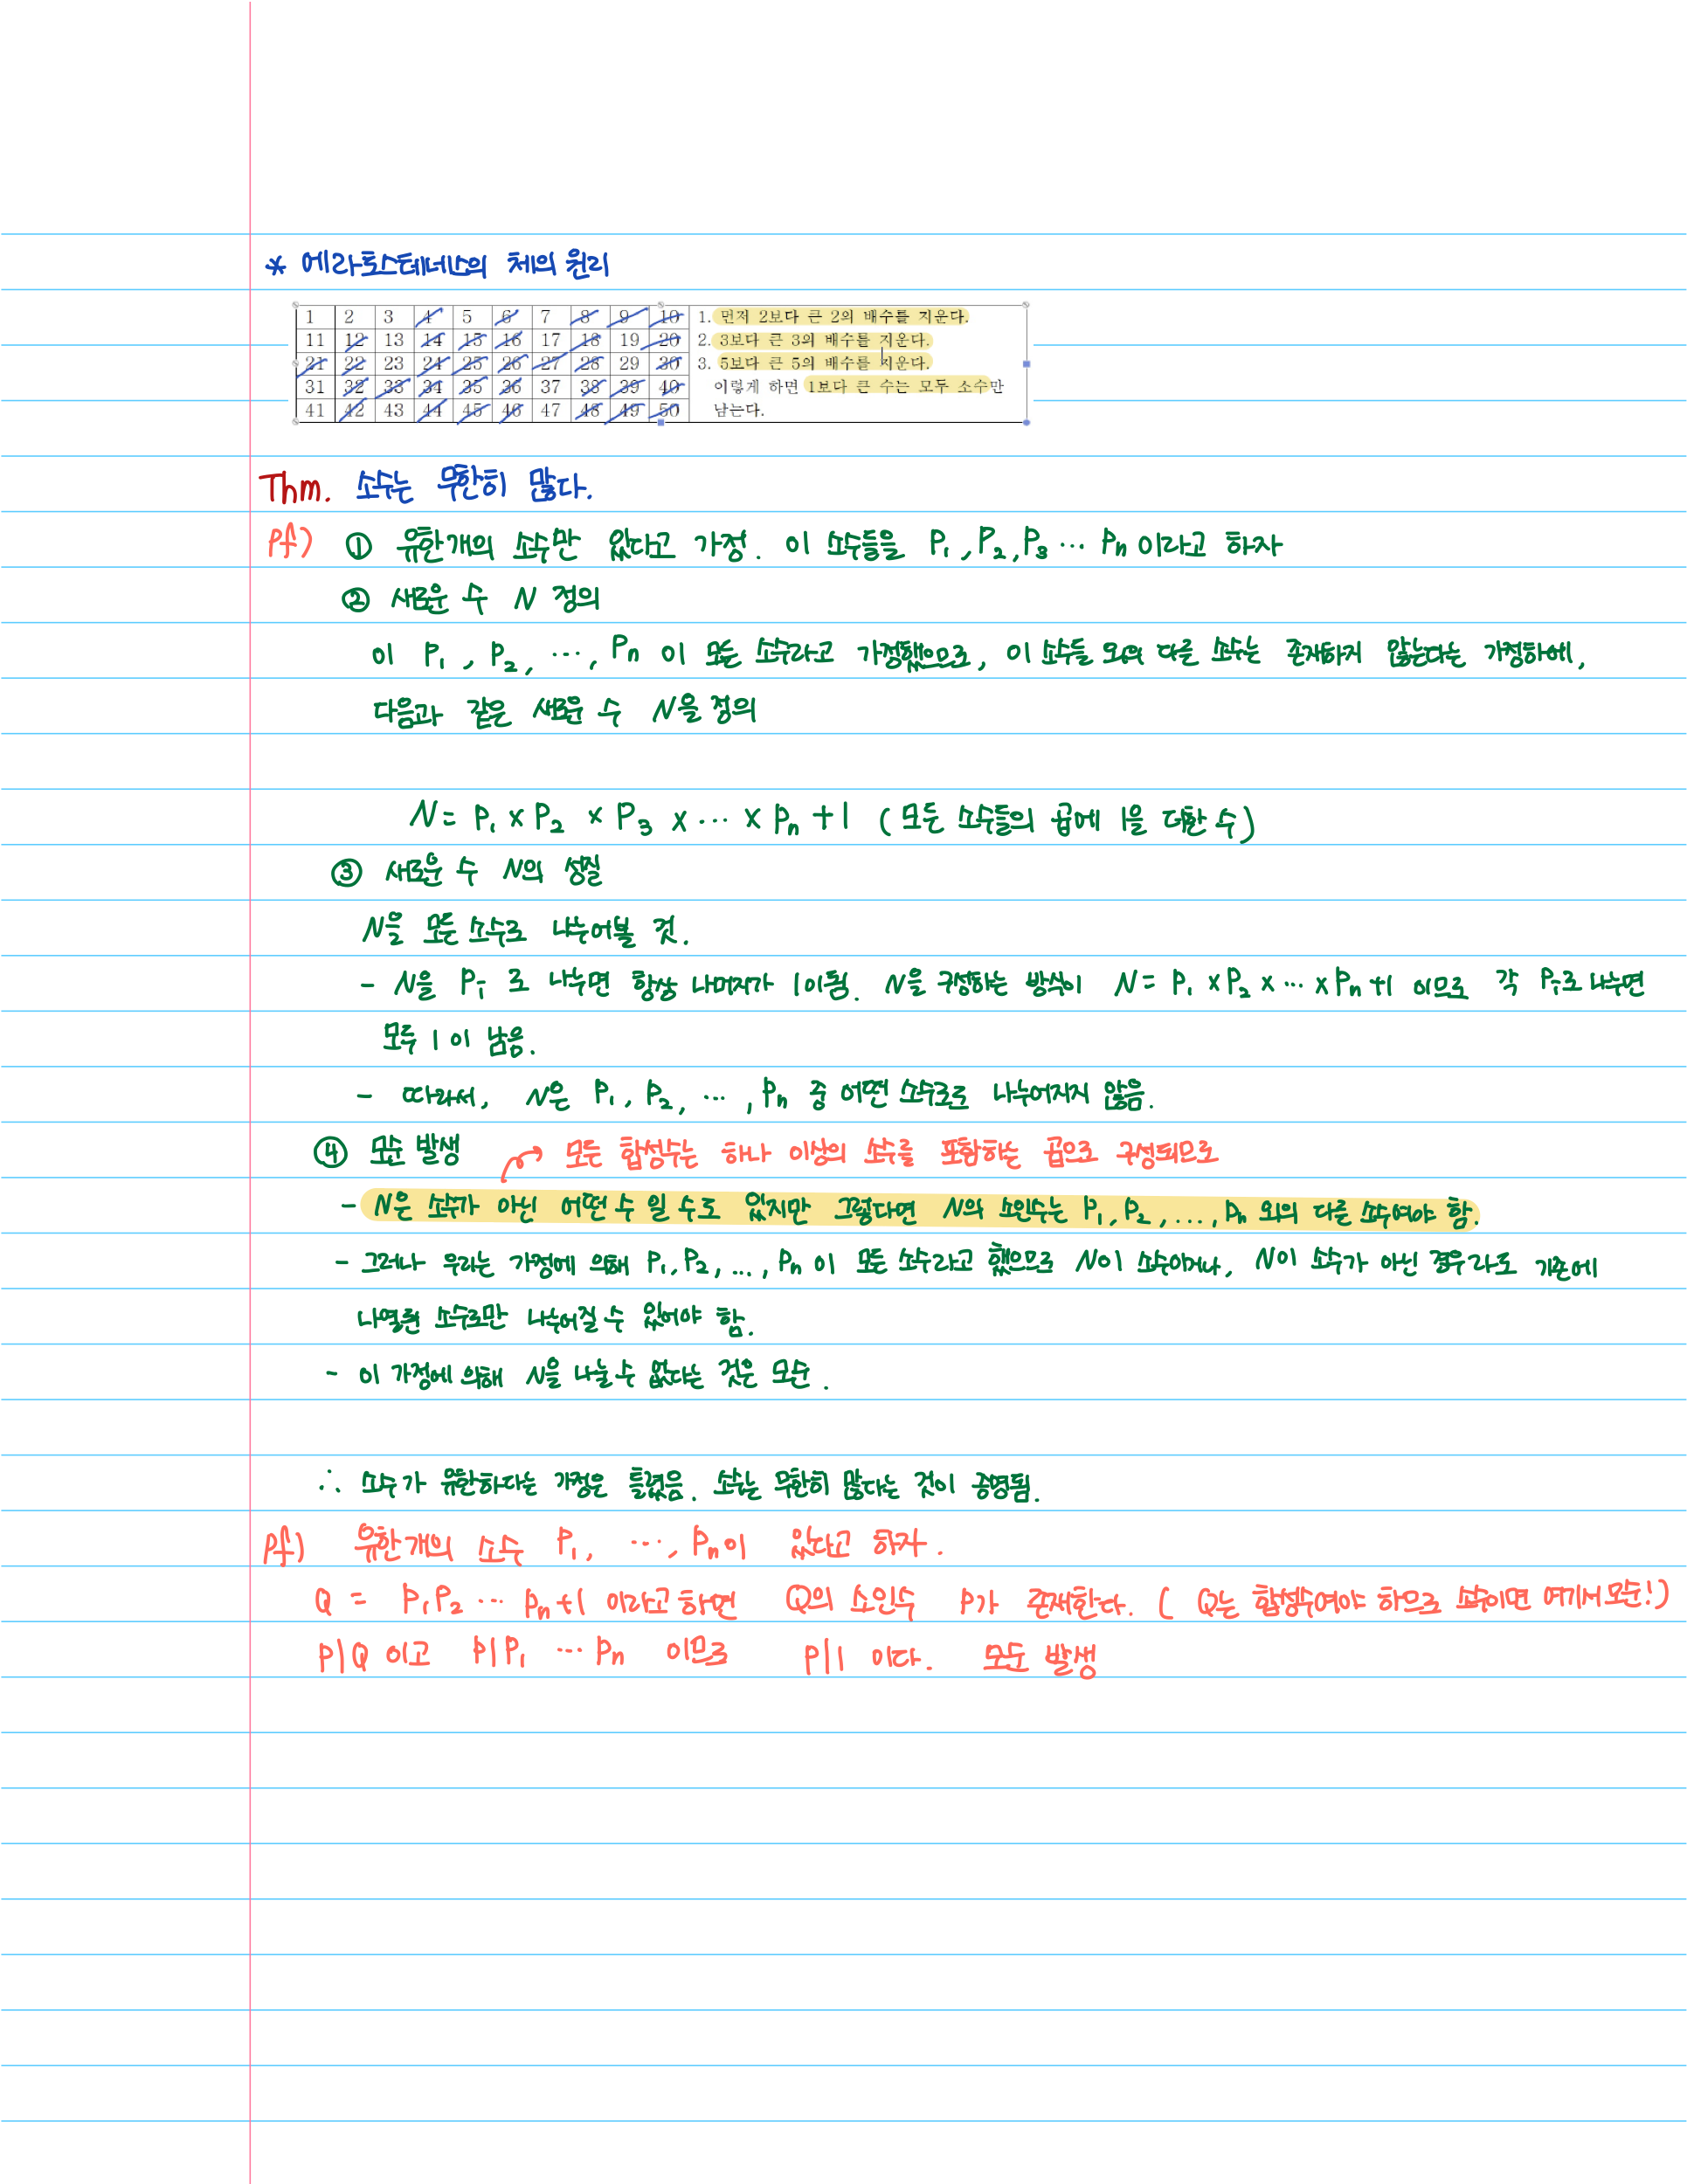 * 에라토스테네스의 체의 원리
1 2 3 4 5 6 7 8 9 10 1. 먼저 2보다 큰 2의 배수를 지운다.
11 12 13 14 15 16 17 18 19 20 2. 3보다 큰 3의 배수를 지운다.
21 22 23 24 25 26 27 28 29 30 3. 5보다 큰 5의 배수를 지운다.
31 32 33 34 35 36 37 38 39 40 이렇게 하면 1보다 큰 수는 모두 소수만
41 42 43 44 45 46 47 48 49 50 남는다.
Thm. 소수는 무한히 많다.
Pf) ① 유한개의 소수만 있다고 가정. 이 소수들을 P₁, P₂, P₃ ⋯ Pn 이라고 하자
② 새로운 수 N 정의
이 P₁, P₂, ⋯, Pn 이 모든 소수라고 가정했으므로, 이 소수들 외의 다른 소수는 존재하지 않는다는 가정하에,
다음과 같은 새로운 수 N을 정의
N = P₁ × P₂ × P₃ × ⋯ × Pn + 1 (모든 소수들의 곱에 1을 더한 수)
③ 새로운 수 N의 성질
N을 모든 소수로 나누어볼 것.
- N을 Pi 로 나누면 항상 나머지가 1이됨. N을 구성하는 방식이 N = P₁ × P₂ × ⋯ × Pn + 1 이므로 각 Pi로 나누면
모두 1이 남음.
- 따라서, N은 P₁, P₂, ⋯, Pn 중 어떤 소수로도 나누어지지 않음.
④ 모순 발생 모든 합성수는 하나 이상의 소수를 포함하는 곱으로 구성되므로
- N은 소수가 아닌 어떤 수 일 수도 있지만 그렇다면 N의 소인수는 P₁, P₂, ..., Pn 외의 다른 소수여야 함.
- 그러나 우리는 가정에 의해 P₁, P₂, ..., Pn 이 모든 소수라고 했으므로 N이 소수이거나, N이 소수가 아닌 경우라도 기존에
나열된 소수로만 나누어질 수 있어야 함.
- 이 가정에 의해 N을 나눌 수 없다는 것은 모순.
∴ 소수가 유한하다는 가정은 틀렸음. 소수는 무한히 많다는 것이 증명됨.
Pf) 유한개의 소수 P₁, ⋯, Pn이 있다고 하자.
Q = P₁P₂ ⋯ Pn+1 이라고 하면 Q의 소인수 P가 존재한다. ( Q는 합성수여야 하므로 소수이면 여기서 모순!)
P|Q 이고 P|P₁ ⋯ Pn 이므로 P|1 이다. 모순 발생